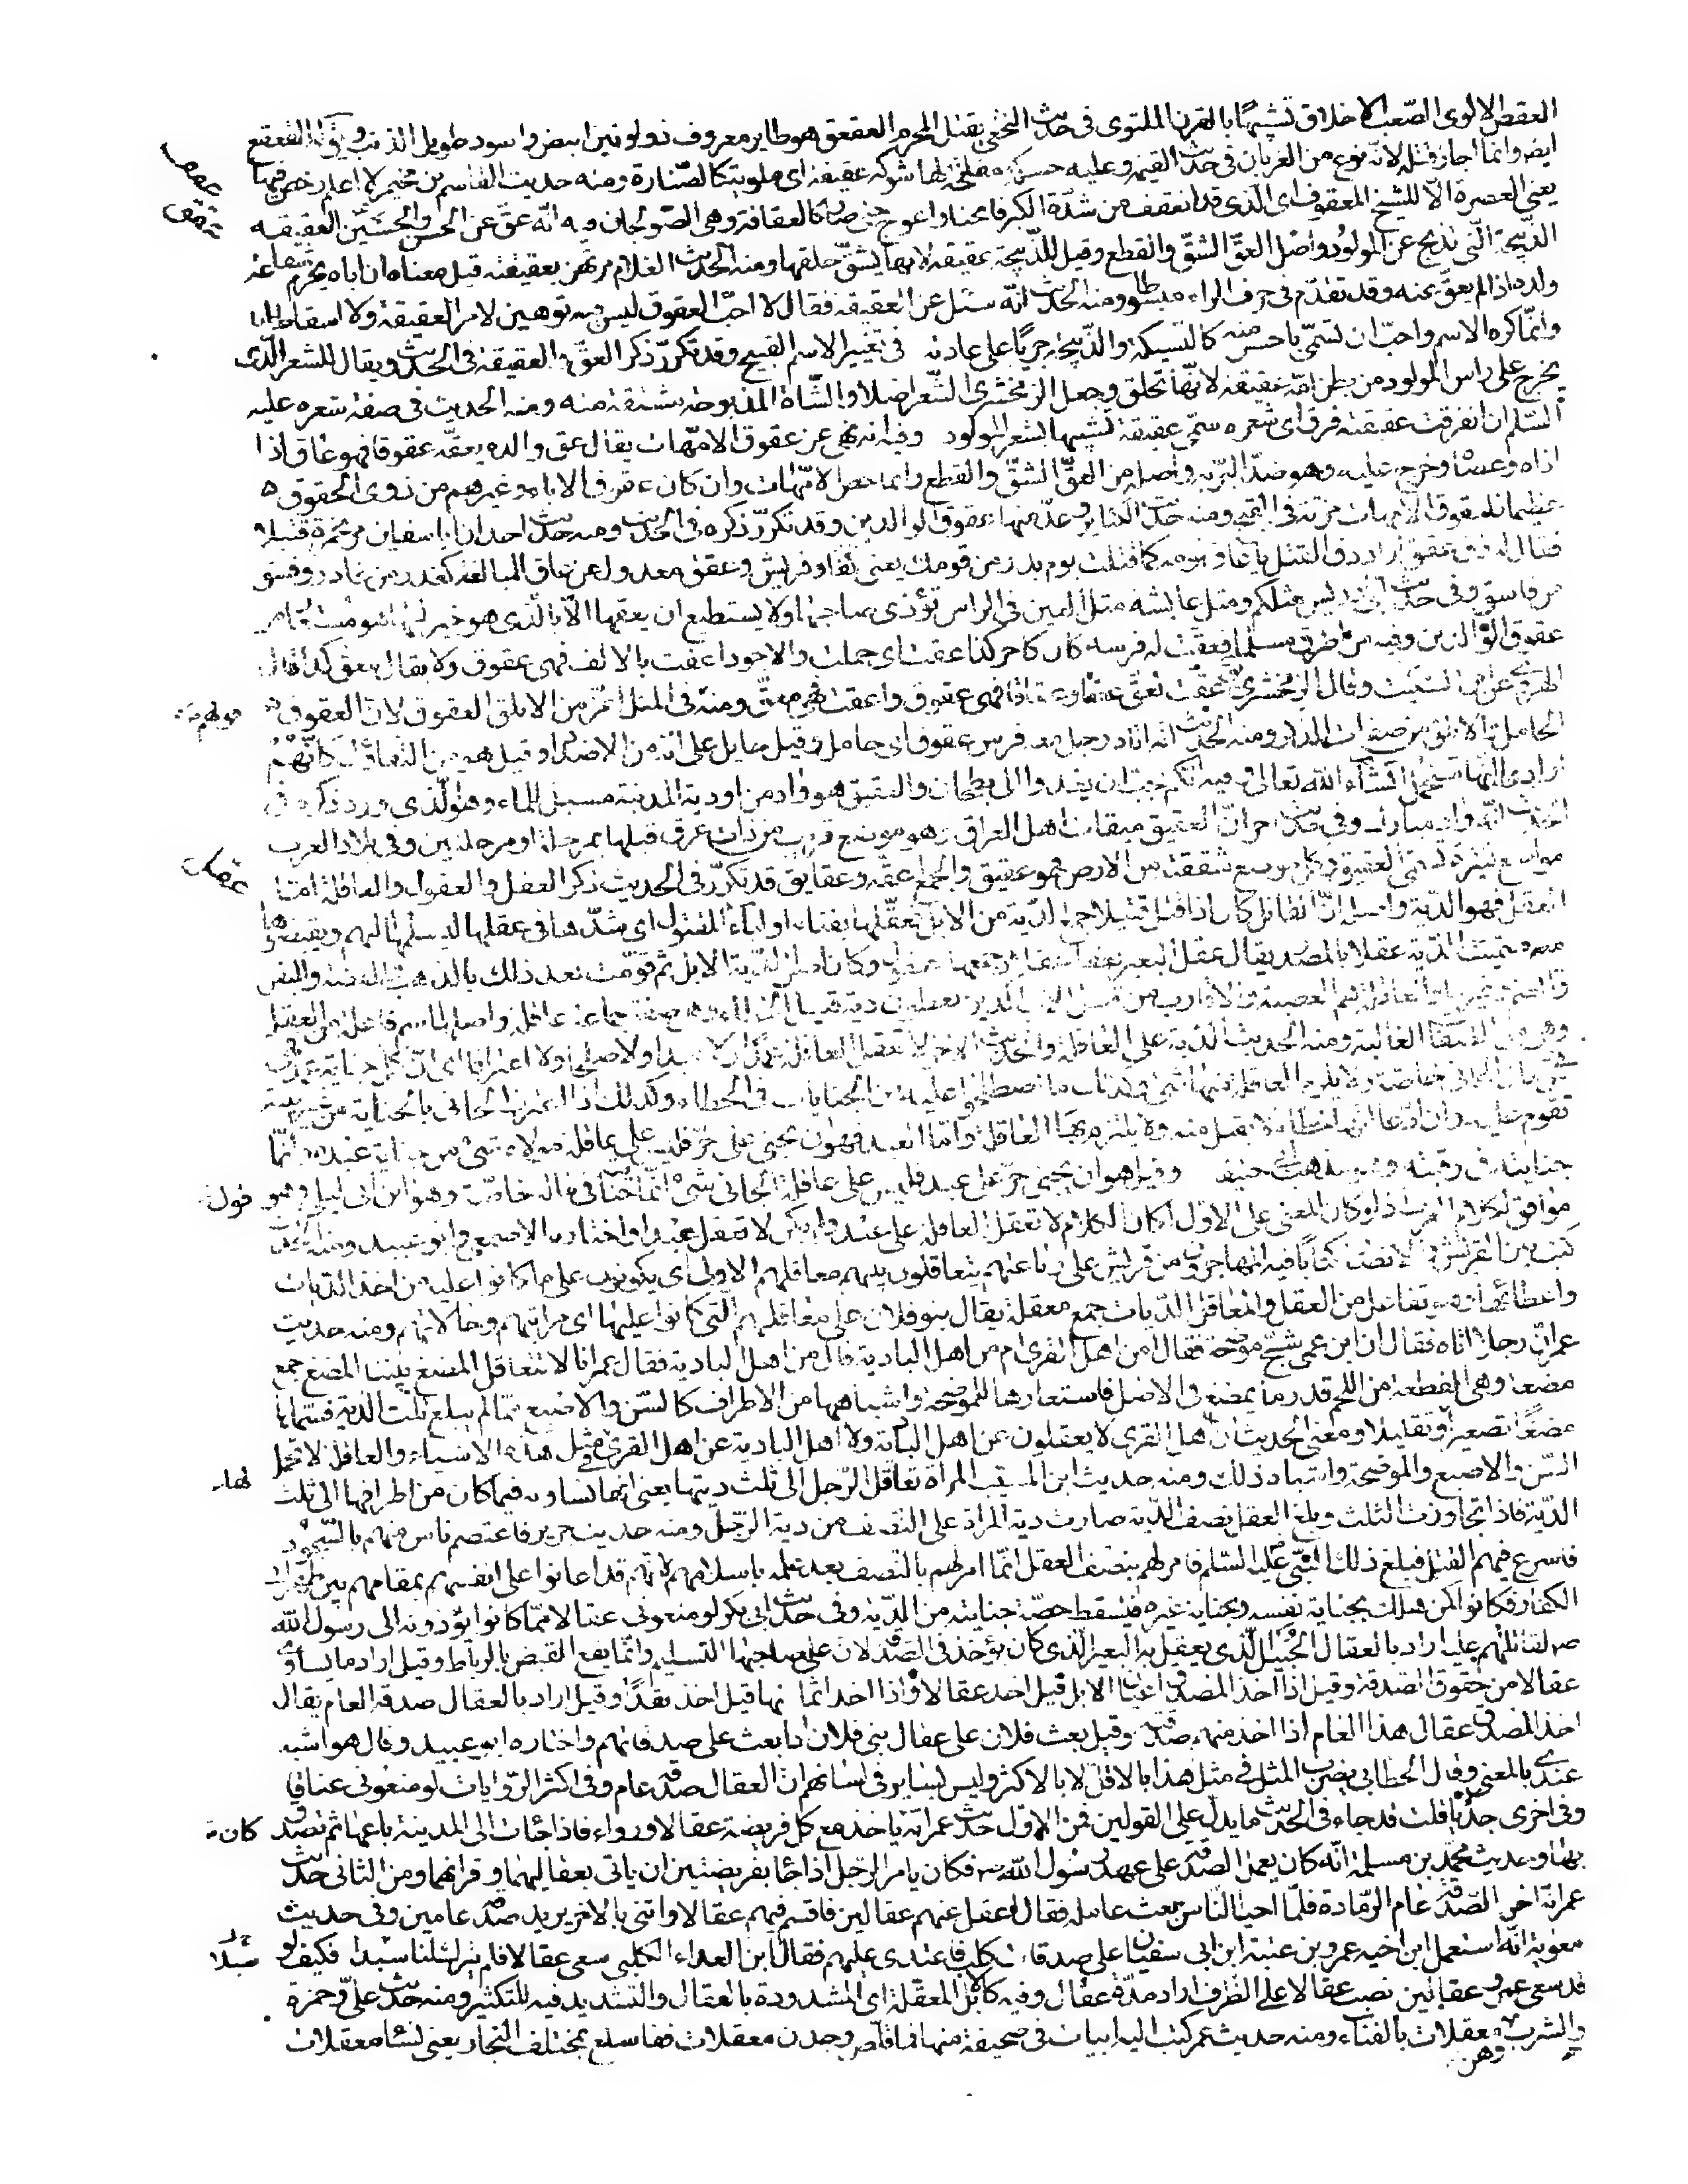 العقص الالوى الصّعب الاخلاق تشبيهًا بالقرن الملتوى فى حديث النخعى يقتل المحرم العقعق هو طاير معروف ذو لونين ابيض واسود طويل الذنب ويق له القعقع
ايض وانما اجاز قتله لانه نوع من الغربان فى حديث القيمة وعليه حسكة مفلطحة لها شوكة عقيفة اى ملوية كالصّنارة ومنه حديث القاسم بن مخيمرة لا اعلم رخص فيها
يعنى العصرة الا للشيخ المعقوف اى الذى قد انعقف من شدّة الكبر فانحنا واعوج حتى صار كالعقافة وهى الصّولجان فيه انّه عقّ عن الحسن والحسين العقيقه
الذّبيحة الّتى تذبح عن المولود واصل العقّ الشقّ والقطع وقيل للذّبيحة عقيقة لانها يشقّ حلقها ومنه الحديث الغلام مرتهن بعقيقته قيل معناه ان اباه يحرم شفاعة
ولده اذا لم يعقّ عنه وقد تقدّم فى حرف الراء مبسّطا ومنه الحديث انّه سئل عن العقيقه فقال لا احبّ العقوق ليس فيه توهين لامر العقيقة ولا اسقاط لها
وانّما كره الاسم واحبّ ان تسمّى باحسن منه كالنسيكة والذّبيحة جريًا على عادته فى تغيير الاسم القبيح وقد تكرّر ذكر العقّ والعقيقة فى الحديث ويقال للشعر الّذى
يخرج على راس المولود من بطن امّه عقيقة لانّها تحلق وجعل الزمخشرى الشّعر اصلا والشّاة المذبوحة مشتقة منه ومنه الحديث فى صفة شعره عليه
السّلم ان انفرقت عقيقته فرق اى شعره سمّى عقيقة تشبيها بشعر المولود وفيه انه نهى عن عقوق الامّهات يقال عق والده يعقّه عقوقا فهو عاق اذا
اذاه وعصاه وخرج عليه وهو ضدّ البرّبه واصله من العقّ الشقّ والقطع وانما خص الامّهات وان كان عقوق الاباء وغيرهم من ذوى الحقوق
عظيما لان عقوق الامهات مزيّة فى القبح ومنه حديث الكباير وعدّ منها عقوق الوالدين وقد تكرّر ذكره فى الحديث ومنه حديث احد ان ابا سفيان مر بحمزة قتيلا
فقال له ذق عقق اراد ذق القتل يا عاق قومه كما قتلت يوم بدر من قومك يعنى كفار قريش وعقق معدول عن عاق للمبالغة كغدر من غادر وفسق
من فاسق وفى حديث ابى ادريس مثلكم ومثل عايشة مثل العين فى الراس تؤذى صاحبها ولا يستطيع ان يعقها الّا بالّذى هو خير لها هو مستعار من
عقوق الوالدين وفيه من اطرق مسلما فعقّت له فرسه كان كاجر كذا عقت اى حملت والاجود اعقت بالالف فهى عقوق ولا يقال معق كذا قال
الهروى عن ابن السكّيت وقال الزمخشرى يق عقّت تعقّ عققا وعقاقا فهى عقوق واعقت فهى معقّ ومنه فى المثل اعزّ من الابلق العقوق لانّ العقوق
الحامل والابلق من صفات الذكر ومنه الحديث انه اتاه رجل معه فرس عقوق اى حامل وقيل حايل على انه من الاضداد وقيل هو من التفاؤل كانّهم
ارادوا انّها ستحمل انشاء الله تعالى وفيه ايّكم يحبّ ان يغدوا الى بطحان والعقيق هو واد من اودية المدينة مسيل للماء وهو الّذى ورد ذكره فى
الحديث انه واد مبارك وفى حديث اخر انّ العقيق ميقات اهل العراق وهو موضع قريب من ذات عرق قبلها بمرحلة او مرحلتين وفى بلاد العرب
مواضع كثيرة تسمّى العقيق وكل موضع شققته من الارض فهو عقيق والجمع اعقّه وعقايق قد تكرّر فى الحديث ذكر العقل والعقول والعاقلة امّا
العقل فهو الدّية واصله انّ القاتل كان اذا قتل قتيلا جمع الدّية من الابل فعقلها بفناء اولياء المقتول اى شدّها فى عقلها ليسلّمها اليهم ويقبضوها
منه فسمّيت الدّية عقلا بالمصدر يقال عقل البعير يعقله عقلا وجمعها عقول وكان اصل الدّية الابل ثم قوّمت بعد ذلك بالذهب والفضّة والبقر
والغنم وغيرها والعاقلة هى العصبة والاقارب من قبل الاب الذين يعطون دية قتيل الخطاء وهى صفة جماعة عاقلة واصلها اسم فاعلة من العقل
وهى من الصفات الغالبة ومنه الحديث الدّية على العاقلة والحديث الاخر لا تعقل العاقلة عمدا ولا عبدا ولا صلحا ولا اعترافا اى انّ كل جناية عمد
فانها من مال الجانى خاصّة ولا يلزم العاقلة منها شئ وكذلك ما اصطلحوا عليه من الجنايات فى الخطاء وكذلك اذا اعترف الجانى بالجناية من غير بيّنة
تقوم عليه وان ادّعا انّها خطاء لا يقبل منه ولا يلزم بها العاقلة وامّا العبد فهو ان يجنى على حرّ فليس على عاقلة مولاه شئ من جناية عبده وانّما
جنايته فى رقبته وهو مذهب ابى حنيفة وقيل هو ان يجنى حرّ على عبد فليس على عاقلة الجانى شئ انّما جنايته فى ماله خاصّة وهو قول ابن ابى ليلى وهو
موافق لكلام العرب اذ لو كان المعنى على الاول لكان الكلام لا تعقل العاقلة على عبد ولم يكن لا تعقل عبدا واختاره الاصمعى وابو عبيد ومنه الحديث
كتب بين قريش والانصار كتابا فيه المهاجرون من قريش على رباعتهم يتعاقلون بينهم معاقلهم الاولى اى يكونون على ما كانوا عليه من اخذ الدّيات
واعطائها وهو تفاعل من العقل والمعاقل الدّيات جمع معقلة يقال بنو فلان على معاقلهم التى كانوا عليها اى مراتبهم وحالاتهم ومنه حديث
عمر انّ رجلا اتاه فقال ان ابن عمى شجّ موضحة فقال امن اهل القرى ام من اهل البادية قال من اهل البادية فقال عمر انا لا نتعاقل المضغ بيننا المضغ جمع
مضغة وهى القطعة من اللحم قدر ما يمضغ فى الاصل فاستعارها للموضحة واشباهها من الاطراف كالسّن والاصبع ممّا لم يبلغ ثلث الدّية فسمّاها
مضغًا تصغيرا وتقليلا ومعنى الحديث انّ اهل القرى لا يعقلون عن اهل البادية ولا اهل البادية عن اهل القرى فى مثل هذه الاشياء والعاقلة لا تحمل
السّن والاصبع والموضحة واشباه ذلك ومنه حديث ابن المسيّب المراة تعاقل الرّجل الى ثلث ديتها يعنى انها تساويه فيما كان من اطرافها الى ثلث
الدّية فاذا تجاوزت الثلث وبلغ العقل نصف الدّية صارت دية المراة على النصف من دية الرّجل ومنه حديث جرير فاعتصم ناس منهم بالسّجود
فاسرع فيهم القتل فبلغ ذلك النّبى عليه السّلم فامر لهم بنصف العقل انّما امر لهم بالنصف بعد علمه باسلامهم لانّهم قد اعانوا على انفسهم بمقامهم بين ظهرانى
الكفار فكانوا كمن هلك بجناية نفسه وبجناية غيره فتسقط حصّة جنايته من الدّية وفى حديث ابى بكر لو منعونى عقالا ممّا كانوا يؤدونه الى رسول الله
ص لقاتلتهم عليه اراد بالعقال الحُبيل الّذى يعقل به البعير الّذى كان يؤخذ فى الصّدقة لان على صاحبها التسليم وانّما يقع القبض بالرباط وقيل اراد ما يساوى
عقالا من حقوق الصّدقة وقيل اذا اخذ المصدّق اعيان الابل قيل اخذ عقالا واذا اخذ اثمانها قيل اخذ نقدًا وقيل اراد بالعقال صدقة العام يقال
اخذ المصدّق عقال هذا العام اذا اخذ منهم صدقته وقيل بعث فلان على عقال بنى فلان اذا بعث على صدقاتهم واختاره ابو عبيد وقال هو اشبه
عندى بالمعنى وقال الخطابى يضرب المثل فى مثل هذا بالاقل لا بالاكثر وليس بساير فى لسانهم ان العقال صدقة عام وفى اكثر الرّوايات لو منعونى عناقا
وفى اخرى جديا قلت قد جاء فى الحديث ما يدل على القولين فمن الاول حديث عمر انّه كان ياخذ مع كل فريضة عقالا ورواء فاذا جائت الى المدينة باعها ثم تصدق
بها وحديث محمّد بن مسلمة انّه كان يعمل الصدقة على عهد رسول الله ص فكان يامر الرّجل اذا جاء بفريضتين ان ياتى بعقاليهما وقرانهما ومن الثانى حديث
عمر انّه اخر الصّدقة عام الرّمادة فلمّا احيا النّاس بعث عامله فقال اعقل عنهم عقالين فاقسم فيهم عقالا واتنى بالاخر يريد صدقة عامين وفى حديث
معوية انّه استعمل ابن اخيه عمرو بن عتبة ابن ابى سفين على صدقات كلب فاعتدى عليهم فقال ابن العداء الكلبى سعى عقالا فلم يترك لنا سبدا فكيف لو
قد سعى عمرو عقالين نصب عقالا على الظرف اراد مدّة عقال وفيه كالابل المعقلة اى المشدودة بالعقال والتشديد فيه للتكثير ومنه حديث علىّ وحمزة
والشرب وهن معقلات بالفناء ومنه حديث عمر كتب اليه ابيات فى صحيفة منها فما قلص وجدن معقلات قفا سلع بمختلف النجار يعنى نساء معقلات